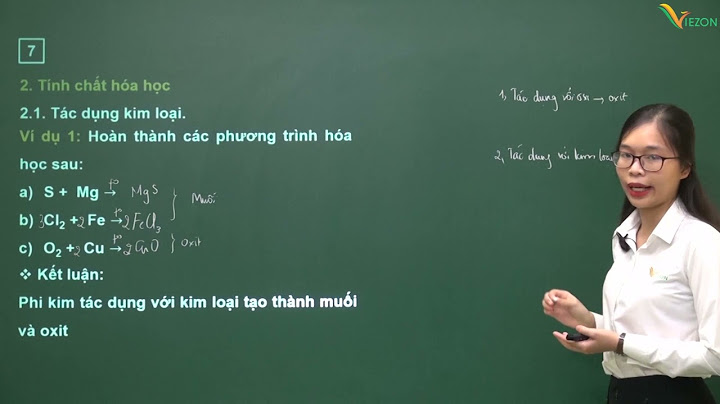 VIEZON
7
2. Tính chất hóa học
2.1. Tác dụng kim loại.
Ví dụ 1: Hoàn thành các phương trình hóa
học sau:
a) S + Mg t° → MgS
b) 3Cl₂ + 2Fe t° → 2FeCl₃
Muối
c) O₂ + 2Cu t° → 2CuO } oxit
❖ Kết luận:
Phi kim tác dụng với kim loại tạo thành muối
và oxit
1, Tác dụng với oxi → oxit
2, Tác dụng với kim loại